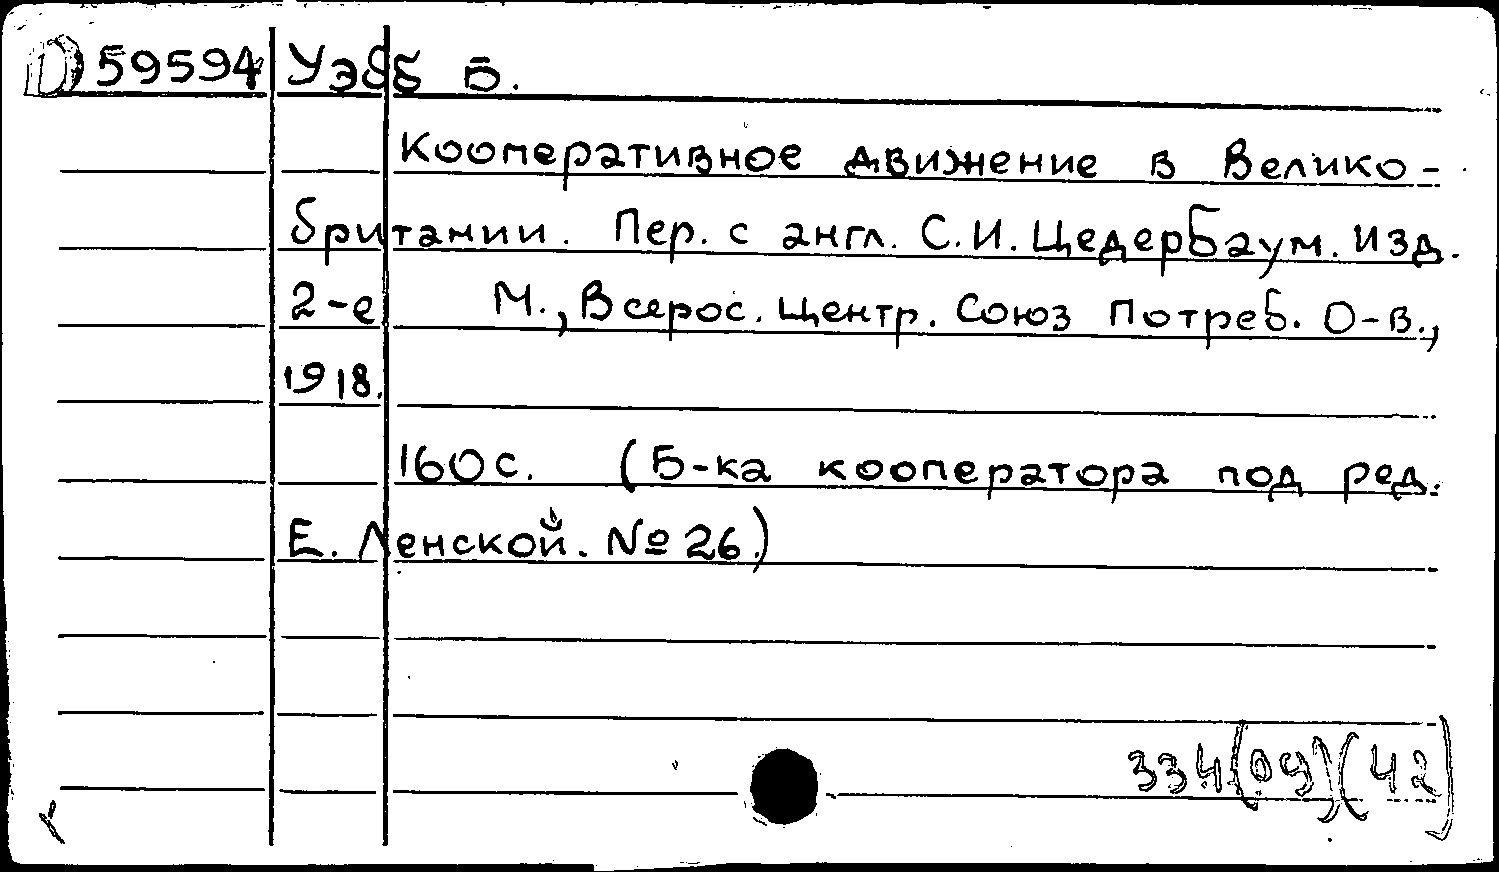 D 59594 Уэбб Б.
Кооперативное движение в Велико-
британии. Пер. с англ. С.И. Цедербаум. Изд.
2-е М., Всерос. Центр. Союз Потреб. О-в.,
1918.
160 с. (Б-ка кооператора под ред.
Е. Ленской. № 26.)
334(09)(42)